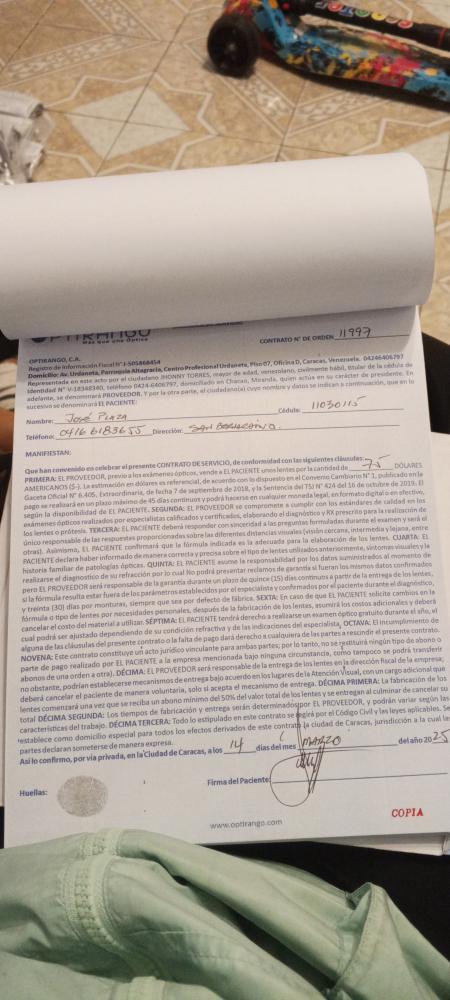 OPTIRANGO
Más que una Óptica
CONTRATO N° DE ORDEN 11997
OPTIRANGO, C.A.
Registro de Información Fiscal N° J-505868454
Domicilio: Av. Urdaneta, Parroquia Altagracia, Centro Profesional Urdaneta, Piso 07, Oficina D, Caracas, Venezuela. 04246406797
Representada en este acto por el ciudadano JHONNY TORRES, mayor de edad, venezolano, civilmente hábil, titular de la cédula de
Identidad N° V-18348340, teléfono 0424-6406797, domiciliado en Chacao, Miranda, quien actúa en su carácter de presidente. En
adelante, se denominará PROVEEDOR. Y por la otra parte, el ciudadano(a) cuyo nombre y datos se indican a continuación, que en lo
sucesivo se denominará EL PACIENTE:
Nombre: JOSÉ PLAZA Cédula: 11030115
Teléfono: 04166183655 Dirección: SAN BERNARDINO.
MANIFIESTAN:
Que han convenido en celebrar el presente CONTRATO DE SERVICIO, de conformidad con las siguientes cláusulas:
PRIMERA: EL PROVEEDOR, previo a los exámenes ópticos, vende a EL PACIENTE unos lentes por la cantidad de 75 DÓLARES
AMERICANOS ($-). La estimación en dólares es referencial, de acuerdo con lo dispuesto en el Convenio Cambiario N° 1, publicado en la
Gaceta Oficial N° 6.405, Extraordinaria, de fecha 7 de septiembre de 2018, y la Sentencia del TSJ N° 424 del 16 de octubre de 2019. El
pago se realizará en un plazo máximo de 45 días continuos y podrá hacerse en cualquier moneda legal, en formato digital o en efectivo,
según la disponibilidad de EL PACIENTE. SEGUNDA: EL PROVEEDOR se compromete a cumplir con los estándares de calidad en los
exámenes ópticos realizados por especialistas calificados y certificados, elaborando el diagnóstico y RX prescrito para la realización de
los lentes o prótesis. TERCERA: EL PACIENTE deberá responder con sinceridad a las preguntas formuladas durante el examen y será el
único responsable de las respuestas proporcionadas sobre las diferentes distancias visuales (visión cercana, intermedia y lejana, entre
otras). Asimismo, EL PACIENTE confirmará que la fórmula indicada es la adecuada para la elaboración de los lentes. CUARTA: EL
PACIENTE declara haber informado de manera correcta y precisa sobre el tipo de lentes utilizados anteriormente, síntomas visuales y la
historia familiar de patologías ópticas. QUINTA: EL PACIENTE asume la responsabilidad por los datos suministrados al momento de
realizarse el diagnostico de su refracción por lo cual No podrá presentar reclamos de garantía si fueran los mismos confirmados
pero EL PROVEEDOR será responsable de la garantía durante un plazo de quince (15) días continuos a partir de la entrega de los lentes,
si la fórmula resulta estar fuera de los parámetros establecidos por el especialista y confirmados por el paciente durante el diagnóstico,
y treinta (30) días por monturas, siempre que sea por defecto de fábrica. SEXTA: En caso de que EL PACIENTE solicite cambios en la
fórmula o tipo de lentes por necesidades personales, después de la fabricación de los lentes, asumirá los costos adicionales y deberá
cancelar el costo del material a utilizar. SÉPTIMA: EL PACIENTE tendrá derecho a realizarse un examen óptico gratuito durante el año, el
cual podrá ser ajustado dependiendo de su condición refractiva y de las indicaciones del especialista. OCTAVA: El incumplimiento de
alguna de las cláusulas del presente contrato o la falta de pago dará derecho a cualquiera de las partes a rescindir el presente contrato.
NOVENA: Este contrato constituye un acto jurídico vinculante para ambas partes; por lo tanto, no se restituirá ningún tipo de abono o
parte de pago realizado por EL PACIENTE a la empresa mencionada bajo ninguna circunstancia, como tampoco se podrá transferir
abonos de una orden a otra). DÉCIMA: EL PROVEEDOR será responsable de la entrega de los lentes en la dirección fiscal de la empresa;
no obstante, podrían establecerse mecanismos de entrega bajo acuerdo en los lugares de la Atención Visual, con un cargo adicional que
deberá cancelar el paciente de manera voluntaria, solo si acepta el mecanismo de entrega. DÉCIMA PRIMERA: La fabricación de los
lentes comenzará una vez que se reciba un abono mínimo del 50% del valor total de los lentes y se entregan al culminar de cancelar su
total DÉCIMA SEGUNDA: Los tiempos de fabricación y entrega serán determinados por EL PROVEEDOR, y podrán variar según las
características del trabajo. DÉCIMA TERCERA: Todo lo estipulado en este contrato se regirá por el Código Civil y las leyes aplicables. Se
establece como domicilio especial para todos los efectos derivados de este contrato la ciudad de Caracas, jurisdicción a la cual las
partes declaran someterse de manera expresa.
Así lo confirmo, por vía privada, en la Ciudad de Caracas, a los 14 días del mes MARZO del año 2025
Huellas:
Firma del Paciente:
www.optirango.com
COPIA